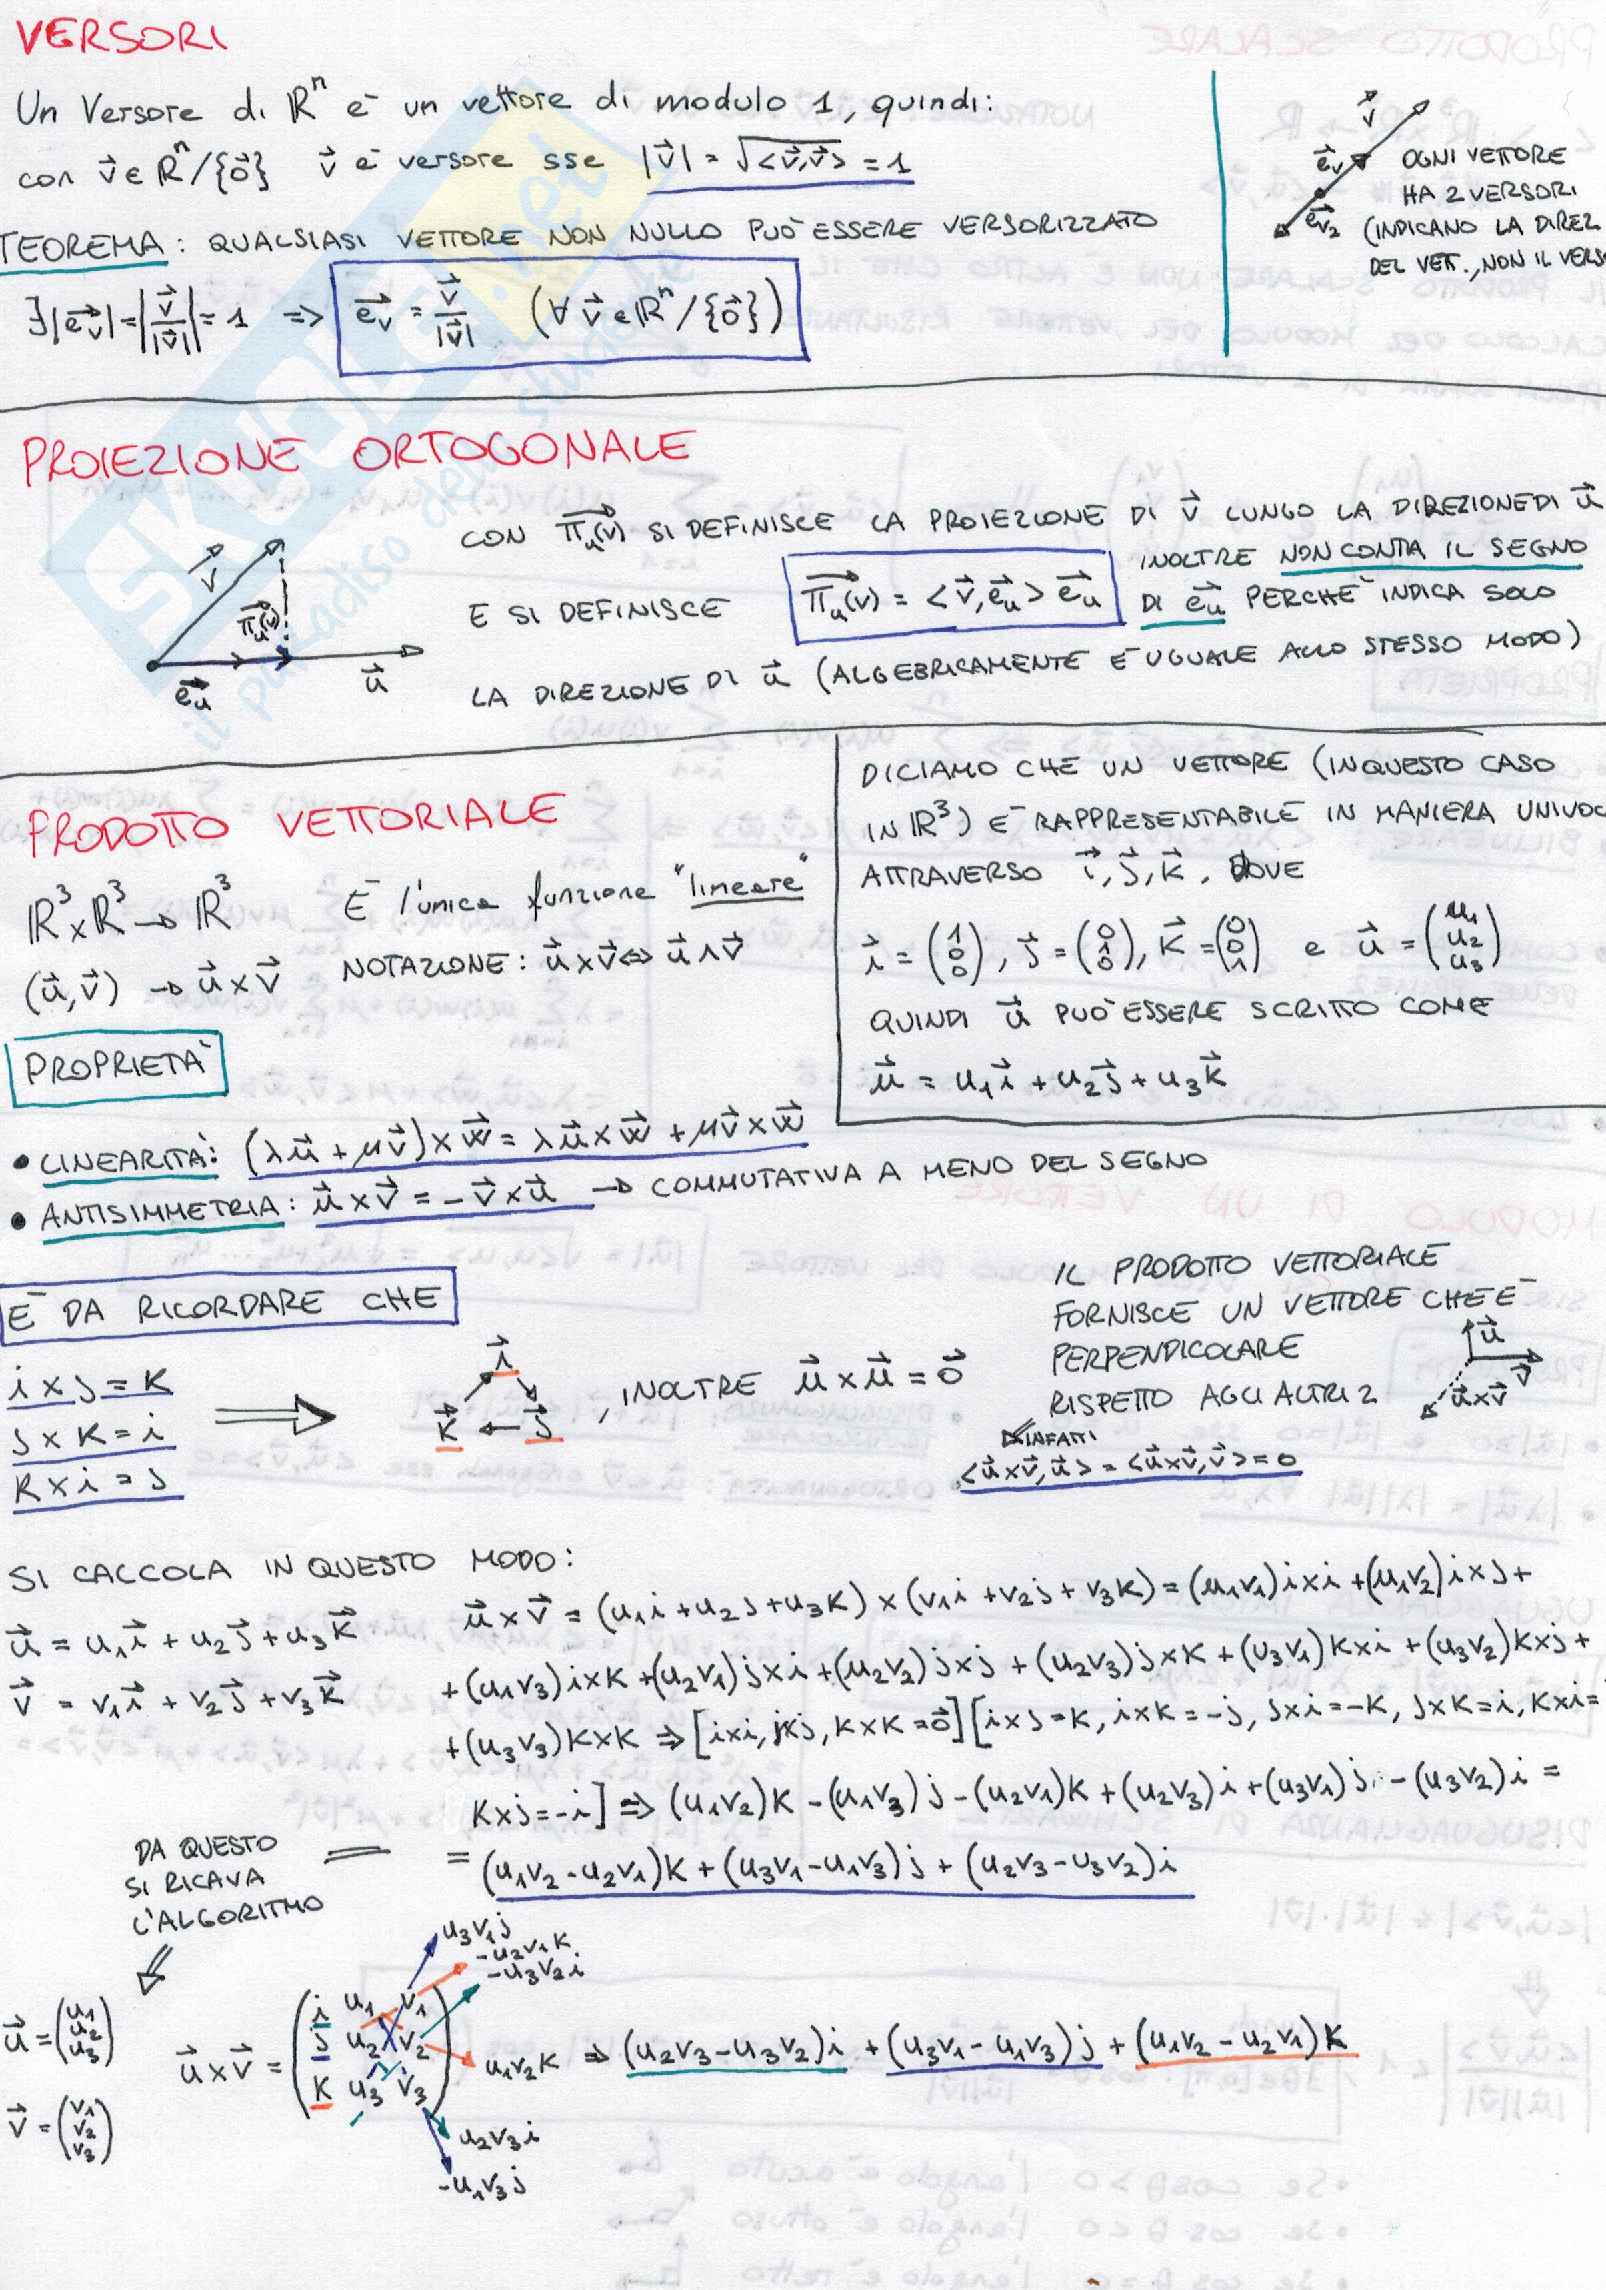 VERSORI
Un Versore di ℝⁿ è un vettore di modulo 1, quindi:
con v⃗ ∈ ℝⁿ/{0⃗} v⃗ è versore sse |v⃗| = √<v⃗,v⃗> = 1
TEOREMA: QUALSIASI VETTORE NON NULLO PUÒ ESSERE VERSORIZZATO
∃|e⃗ᵥ| = |v⃗/|v⃗|| = 1 => e⃗ᵥ = v⃗/|v⃗| (∀ v⃗ ∈ ℝⁿ/{0⃗})
v⃗
e⃗ᵥ
e⃗ᵥ₂
OGNI VETTORE
HA 2 VERSORI
(INDICANO LA DIREZ
DEL VETT., NON IL VERSO
PROIEZIONE ORTOGONALE
v⃗
π⃗ᵤ(v)
e⃗ᵤ
u⃗
CON π⃗ᵤ(v) SI DEFINISCE LA PROIEZIONE DI v⃗ LUNGO LA DIREZIONE DI u⃗
E SI DEFINISCE π⃗ᵤ(v) = <v⃗,e⃗ᵤ> e⃗ᵤ
INOLTRE NON CONTA IL SEGNO
DI e⃗ᵤ PERCHÈ INDICA SOLO
LA DIREZIONE DI u⃗ (ALGEBRICAMENTE È UGUALE ALLO STESSO MODO)
PRODOTTO VETTORIALE
ℝ³×ℝ³ → ℝ³ È l'unica funzione "lineare"
(u⃗,v⃗) → u⃗×v⃗ NOTAZIONE: u⃗×v⃗ ⇔ u⃗∧v⃗
DICIAMO CHE UN VETTORE (IN QUESTO CASO
IN ℝ³) È RAPPRESENTABILE IN MANIERA UNIVOC
ATTRAVERSO i⃗, j⃗, k⃗, DOVE
i⃗ = (1 0 0), j⃗ = (0 1 0), k⃗ = (0 0 1) e u⃗ = (u₁ u₂ u₃)
QUINDI u⃗ PUÒ ESSERE SCRITTO COME
u⃗ = u₁i⃗ + u₂j⃗ + u₃k⃗
PROPRIETÀ
• LINEARITÀ: (λu⃗ + μv⃗)×w⃗ = λu⃗×w⃗ + μv⃗×w⃗
• ANTISIMMETRIA: u⃗×v⃗ = -v⃗×u⃗ → COMMUTATIVA A MENO DEL SEGNO
È DA RICORDARE CHE
i×j = k
j×k = i
k×i = j
i⃗
k⃗ j⃗
, INOLTRE u⃗×u⃗ = 0⃗
IL PRODOTTO VETTORIALE
FORNISCE UN VETTORE CHE È
PERPENDICOLARE
RISPETTO AGLI ALTRI 2
INFATTI
<u⃗×v⃗,u⃗> = <u⃗×v⃗,v⃗> = 0
u⃗
v⃗
u⃗×v⃗
SI CALCOLA IN QUESTO MODO:
u⃗ = u₁i⃗ + u₂j⃗ + u₃k⃗
v⃗ = v₁i⃗ + v₂j⃗ + v₃k⃗
u⃗×v⃗ = (u₁i+u₂j+u₃k)×(v₁i+v₂j+v₃k) = (u₁v₁)i×i + (u₁v₂)i×j +
+(u₁v₃)i×k + (u₂v₁)j×i + (u₂v₂)j×j + (u₂v₃)j×k + (u₃v₁)k×i + (u₃v₂)k×j +
+(u₃v₃)k×k ⇒ [i×i, j×j, k×k = 0⃗] [i×j=k, i×k=-j, j×i=-k, j×k=i, k×i=
k×j=-i] ⇒ (u₁v₂)k - (u₁v₃)j - (u₂v₁)k + (u₂v₃)i + (u₃v₁)j - (u₃v₂)i =
= (u₁v₂-u₂v₁)k + (u₃v₁-u₁v₃)j + (u₂v₃-u₃v₂)i
DA QUESTO
SI RICAVA
L'ALGORITMO
u⃗ = (u₁ u₂ u₃)
v⃗ = (v₁ v₂ v₃)
u₃v₁j
-u₂v₁k
-u₃v₂i
i u₁ v₁
u⃗×v⃗ = j u₂ v₂ u₁v₂k ⇒ (u₂v₃-u₃v₂)i + (u₃v₁-u₁v₃)j + (u₁v₂-u₂v₁)k
k u₃ v₃
u₂v₃i
-u₁v₃j
SKUOLA.net
il paradiso dello studente